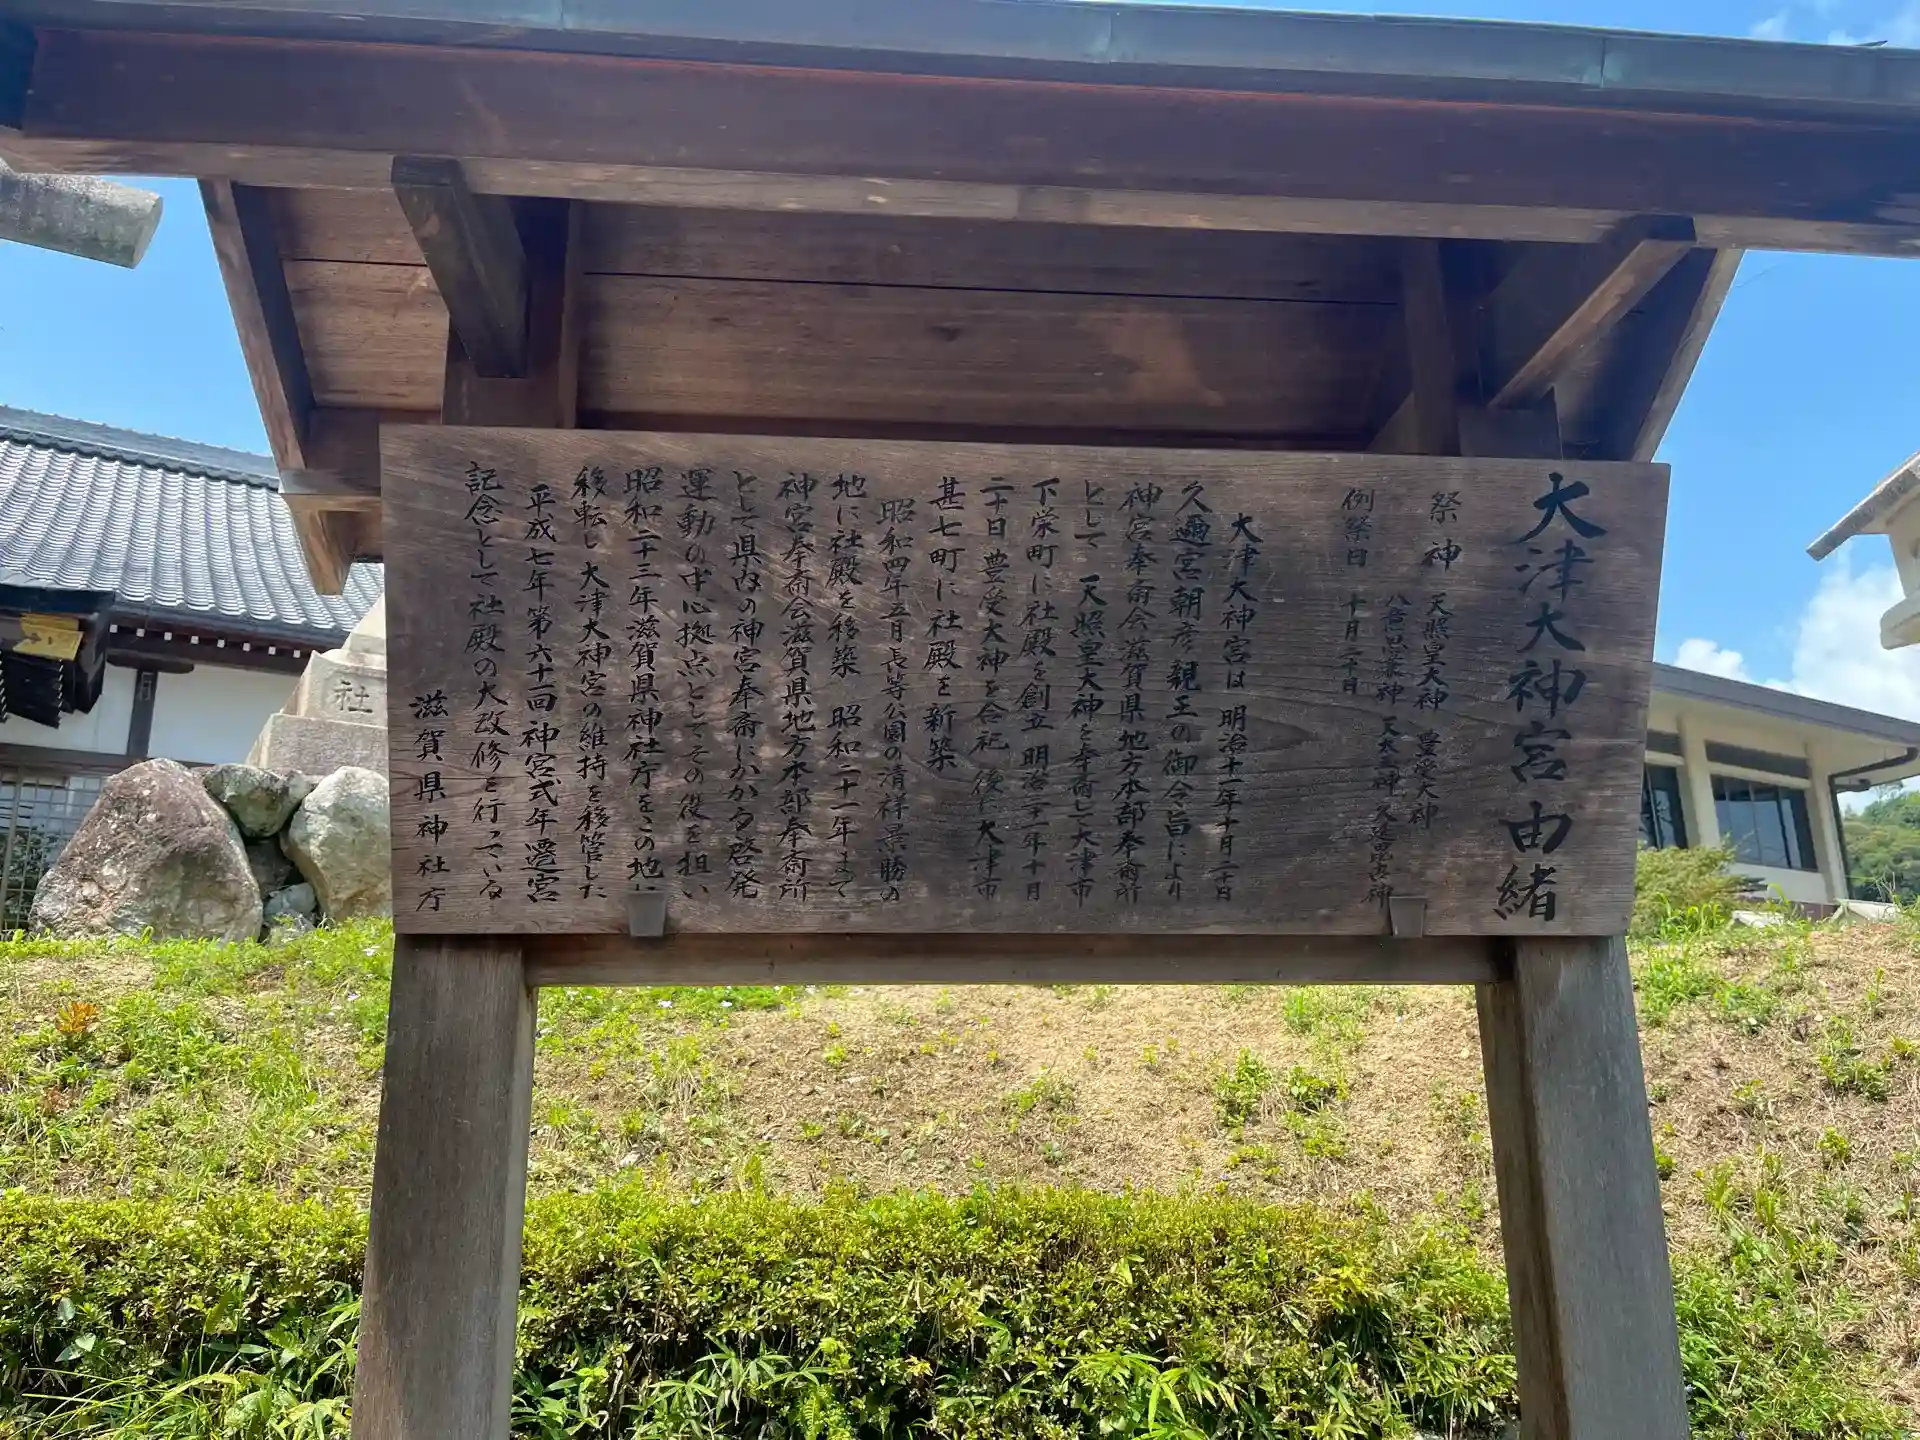 大津大神宮由緒
祭神 天照皇大神 豊受大神
八意思兼神 天太玉神 久延毘古神
例祭日 十月二十日
大津大神宮は 明治十一年十月二十日
久邇宮朝彦親王の御令旨により
神宮奉斎会滋賀県地方本部奉斎所
として 天照皇大神を奉斎して大津市
下栄町に社殿を創立 明治二十一年十月
二十日 豊受大神を合祀 後に大津市
甚七町に社殿を新築
昭和四年五月長等公園の清祥景勝の
地に社殿を移築 昭和二十一年まで
神宮奉斎会滋賀県地方本部奉斎所
として県内の神宮奉斎にかかる啓発
運動の中心拠点としてその役を担い
昭和二十三年滋賀県神社庁をこの地に
移転し大津大神宮の維持を移管した
平成七年第六十一回神宮式年遷宮
記念として社殿の大改修を行っている
滋賀県神社庁
社